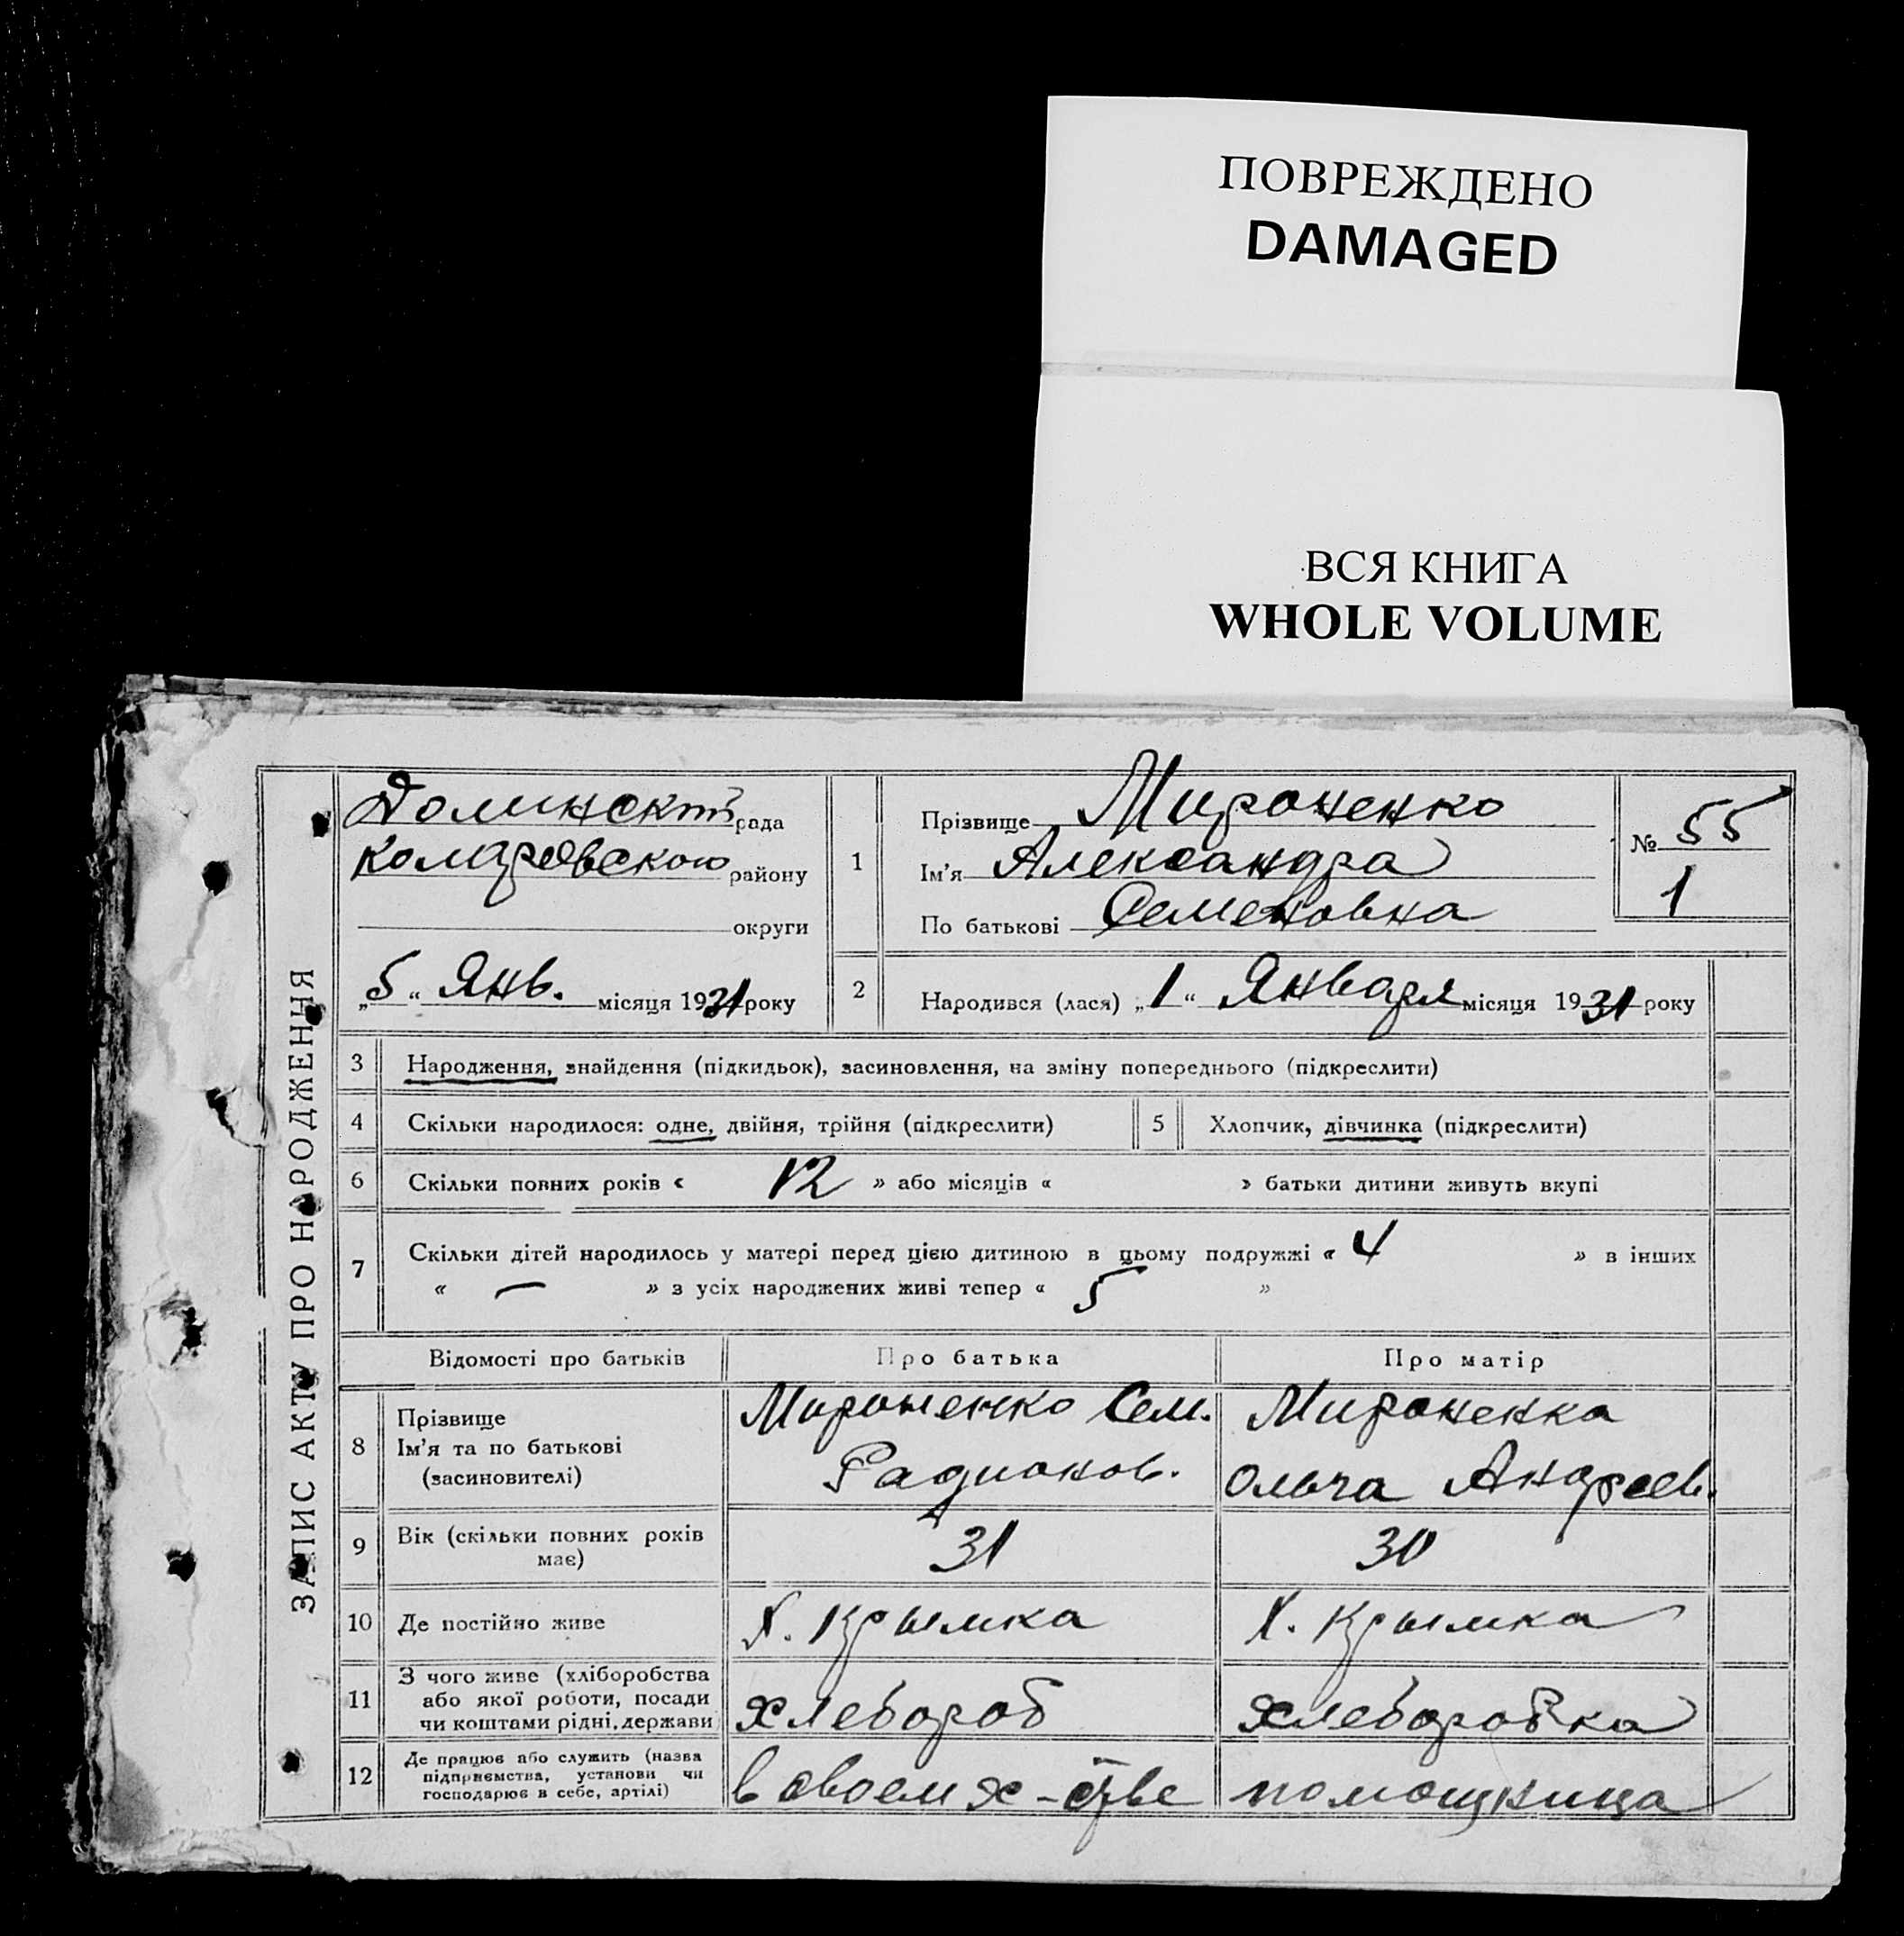 ПОВРЕЖДЕНО
DAMAGED
ВСЯ КНИГА
WHOLE VOLUME
ЗАПИС АКТУ ПРО НАРОДЖЕННЯ
Долинскт рада
Комаровскою району
округи
„5“ Янв. місяця 1931 року
1
Прізвище Мироненко
Ім'я Александра
По батькові Семеновна
№ 55
1
2
Народився (лася) „1“ Января місяця 1931 року
3 Народження, знайдення (підкидьок), засиновлення, на зміну попереднього (підкреслити)
4 Скільки народилося: одне, двійня, трійня (підкреслити) 5 Хлопчик, дівчинка (підкреслити)
6 Скільки повних років « 12 » або місяців « » батьки дитини живуть вкупі
7 Скільки дітей народилось у матері перед цією дитиною в цьому подружжі « 4 » в інших
« — » з усіх народжених живі тепер « 5 »
Відомості про батьків Про батька Про матір
8 Прізвище
Ім'я та по батькові
(засиновителі)
Мироненко Сем.
Радионов.
Мироненка
Ольга Андреев.
9 Вік (скільки повних років
має)
31 30
10 Де постійно живе Х. Крымка Х. Крымка
11 З чого живе (хліборобства
або якої роботи, посади
чи коштами рідні, держави
хлебороб хлеборобка
12 Де працює або служить (назва
підприємства, установи чи
господарює в себе, артілі)
в своем х-стве помощница